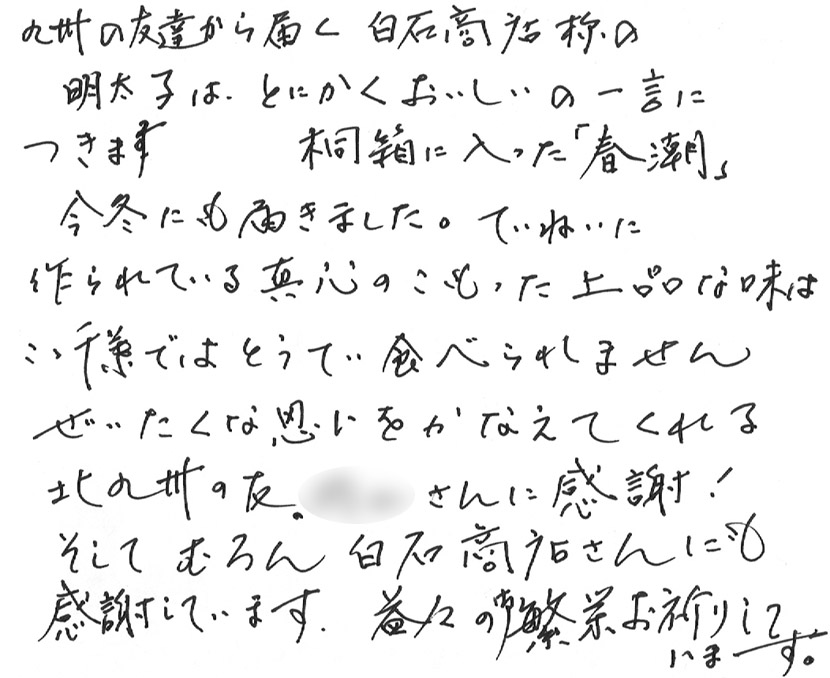 九州の友達から届く 白石商店様の
明太子は、とにかくおいしいの一言に
つきます 桐箱に入った「春潮」
今冬にも届きました。ていねいに
作られている真心のこもった上品な味は
千葉ではとうてい食べられません
ぜいたくな思いをかなえてくれる
北九州の友、さんに感謝!
そして むろん 白石商店さんにも
感謝しています。益々の御繁栄お祈りして
います。